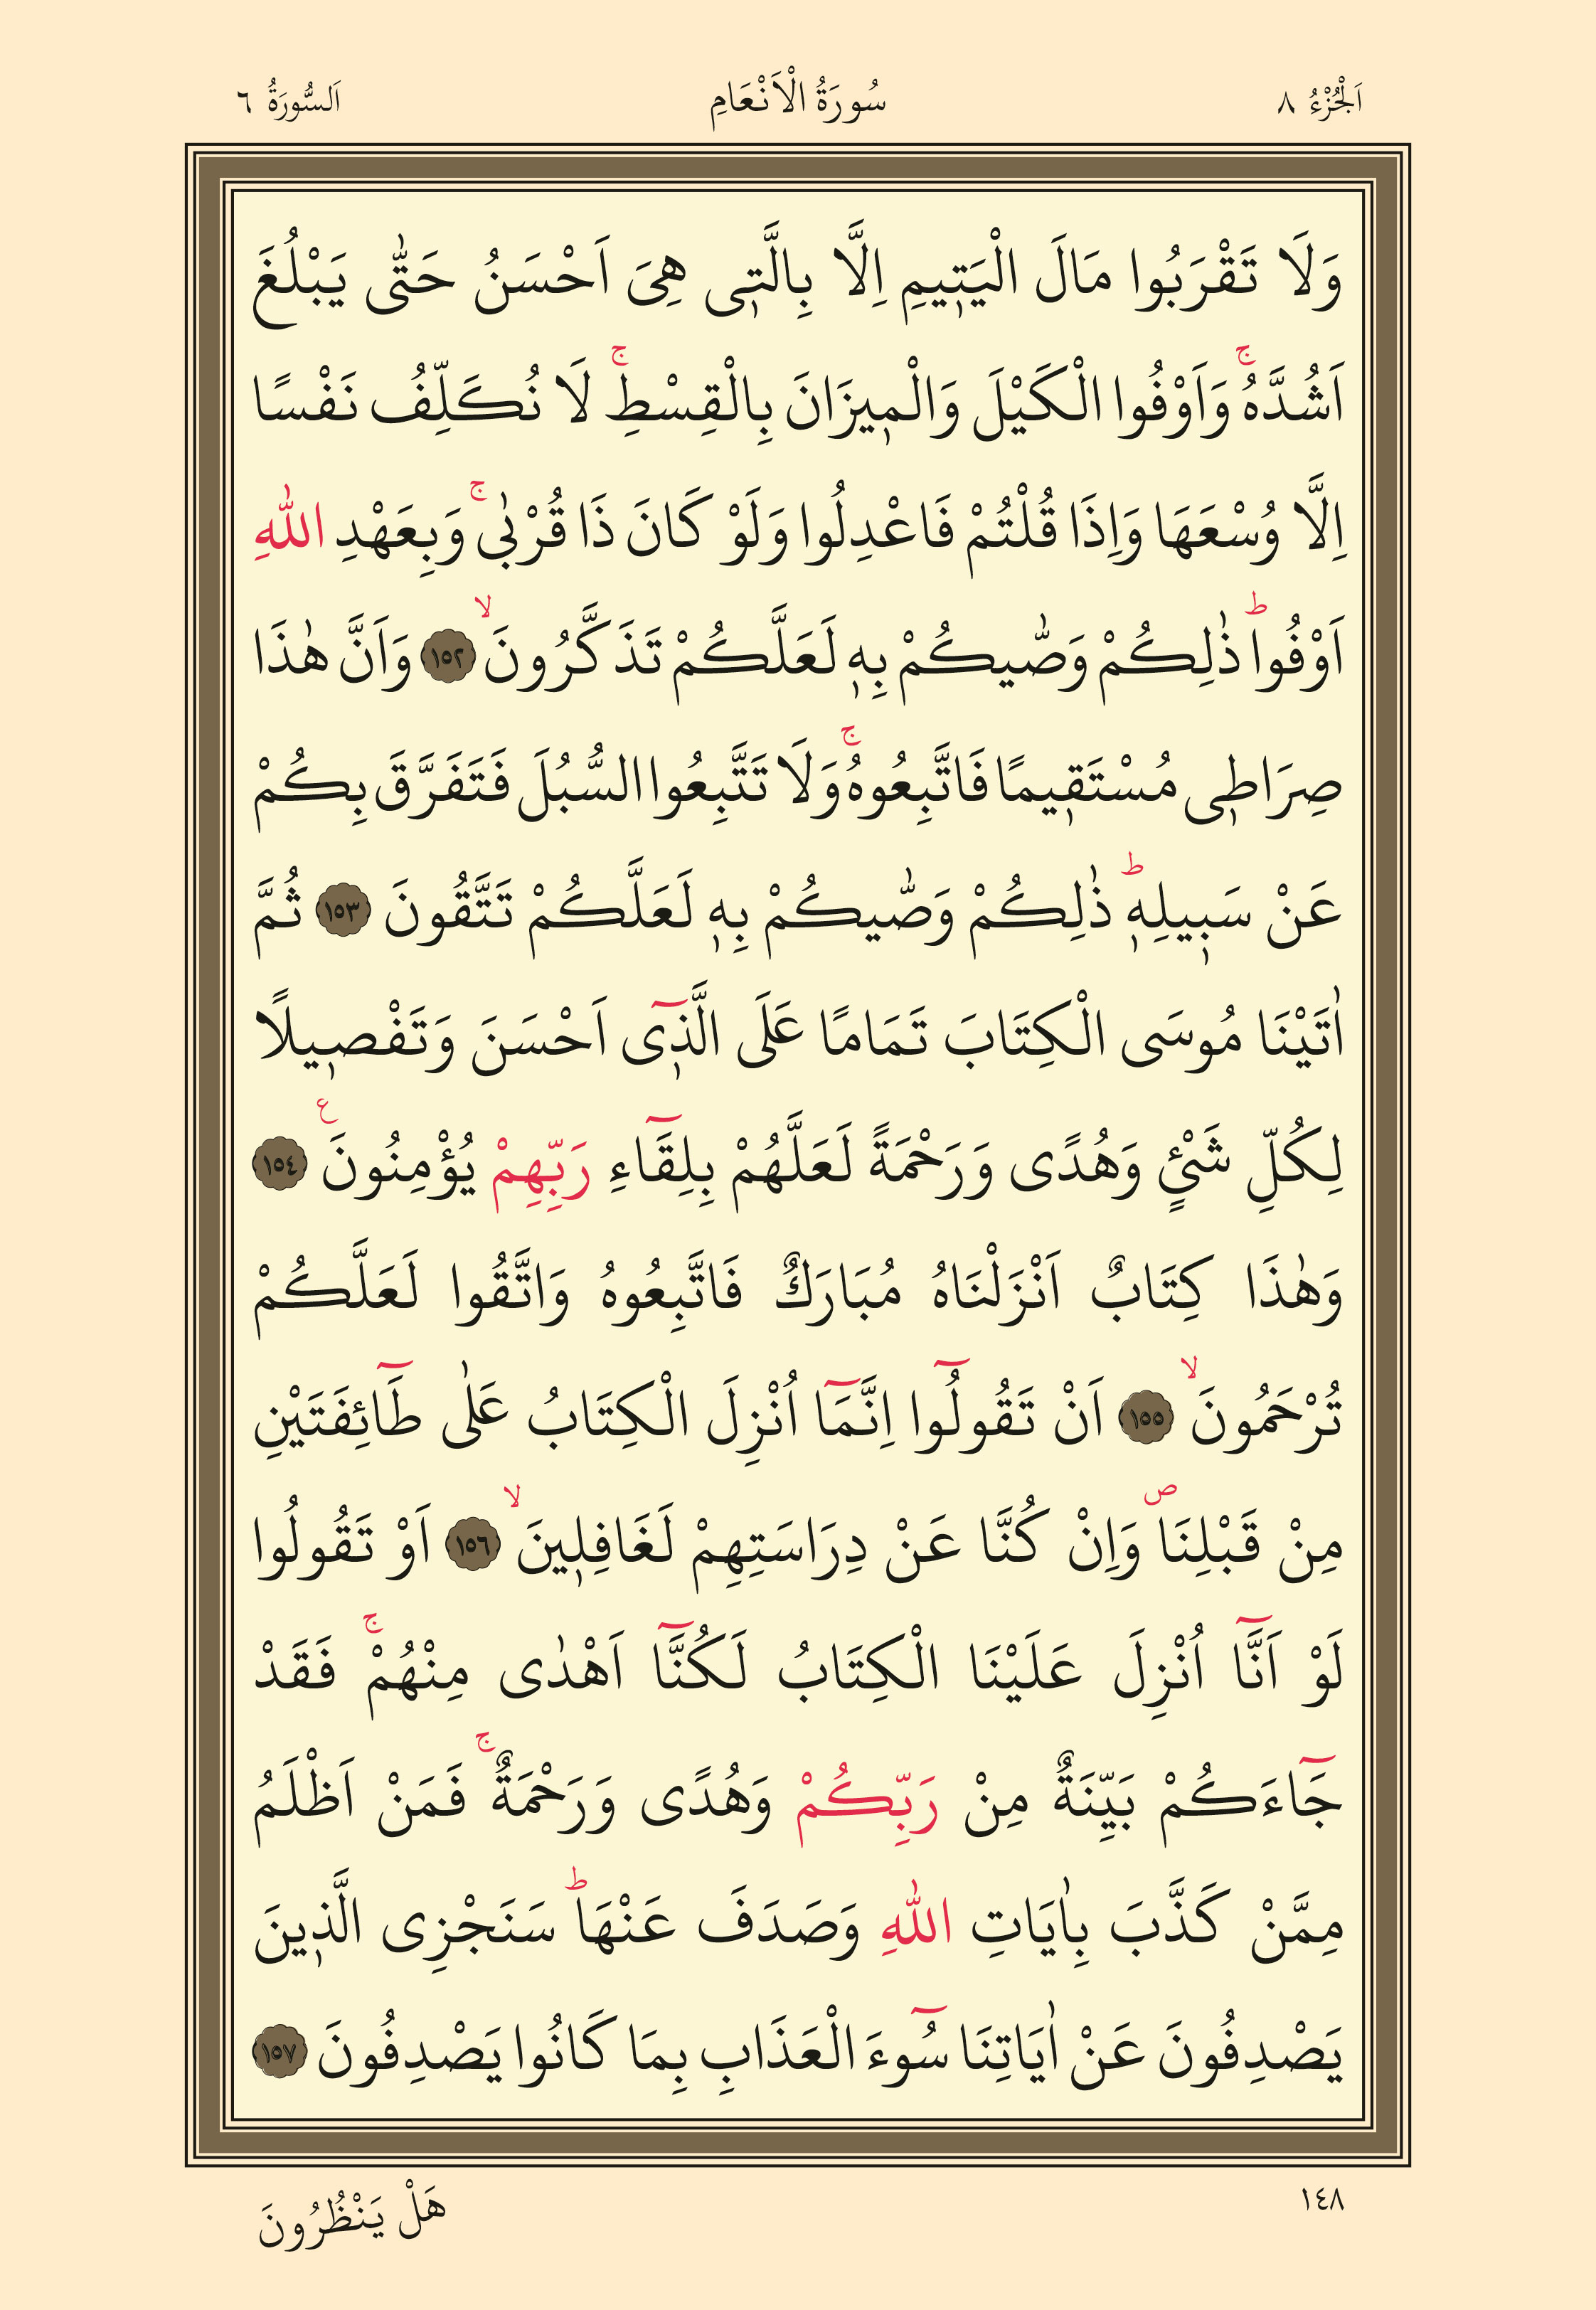 اَلْجُزْءُ ٨
سُورَةُ الْاَنْعَامِ
اَلسُّورَةُ ٦
وَلَا تَقْرَبُوا مَالَ الْيَتٖيمِ اِلَّا بِالَّتٖى هِىَ اَحْسَنُ حَتّٰى يَبْلُغَ
اَشُدَّهُۚ وَاَوْفُوا الْكَيْلَ وَالْمٖيزَانَ بِالْقِسْطِۚ لَا نُكَلِّفُ نَفْسًا
اِلَّا وُسْعَهَا وَاِذَا قُلْتُمْ فَاعْدِلُوا وَلَوْ كَانَ ذَا قُرْبٰىۚ وَبِعَهْدِ اللّٰهِ
اَوْفُواؕ ذٰلِكُمْ وَصّٰيكُمْ بِهٖ لَعَلَّكُمْ تَذَكَّرُونَۙ ١٥٢ وَاَنَّ هٰذَا
صِرَاطٖى مُسْتَقٖيمًا فَاتَّبِعُوهُۚ وَلَا تَتَّبِعُوا السُّبُلَ فَتَفَرَّقَ بِكُمْ
عَنْ سَبٖيلِهٖؕ ذٰلِكُمْ وَصّٰيكُمْ بِهٖ لَعَلَّكُمْ تَتَّقُونَ ١٥٣ ثُمَّ
اٰتَيْنَا مُوسَى الْكِتَابَ تَمَامًا عَلَى الَّذٖٓى اَحْسَنَ وَتَفْصٖيلًا
لِكُلِّ شَىْئٍ وَهُدًى وَرَحْمَةً لَعَلَّهُمْ بِلِقَٓاءِ رَبِّهِمْ يُؤْمِنُونَ ع ١٥٤
وَهٰذَا كِتَابٌ اَنْزَلْنَاهُ مُبَارَكٌ فَاتَّبِعُوهُ وَاتَّقُوا لَعَلَّكُمْ
تُرْحَمُونَۙ ١٥٥ اَنْ تَقُولُٓوا اِنَّمَٓا اُنْزِلَ الْكِتَابُ عَلٰى طَٓائِفَتَيْنِ
مِنْ قَبْلِنَا ص وَاِنْ كُنَّا عَنْ دِرَاسَتِهِمْ لَغَافِلٖينَۙ ١٥٦ اَوْ تَقُولُوا
لَوْ اَنَّٓا اُنْزِلَ عَلَيْنَا الْكِتَابُ لَكُنَّٓا اَهْدٰى مِنْهُمْۚ فَقَدْ
جَٓاءَكُمْ بَيِّنَةٌ مِنْ رَبِّكُمْ وَهُدًى وَرَحْمَةٌۚ فَمَنْ اَظْلَمُ
مِمَّنْ كَذَّبَ بِاٰيَاتِ اللّٰهِ وَصَدَفَ عَنْهَاؕ سَنَجْزِى الَّذٖينَ
يَصْدِفُونَ عَنْ اٰيَاتِنَا سُٓوءَ الْعَذَابِ بِمَا كَانُوا يَصْدِفُونَ ١٥٧
١٤٨
هَلْ يَنْظُرُونَ